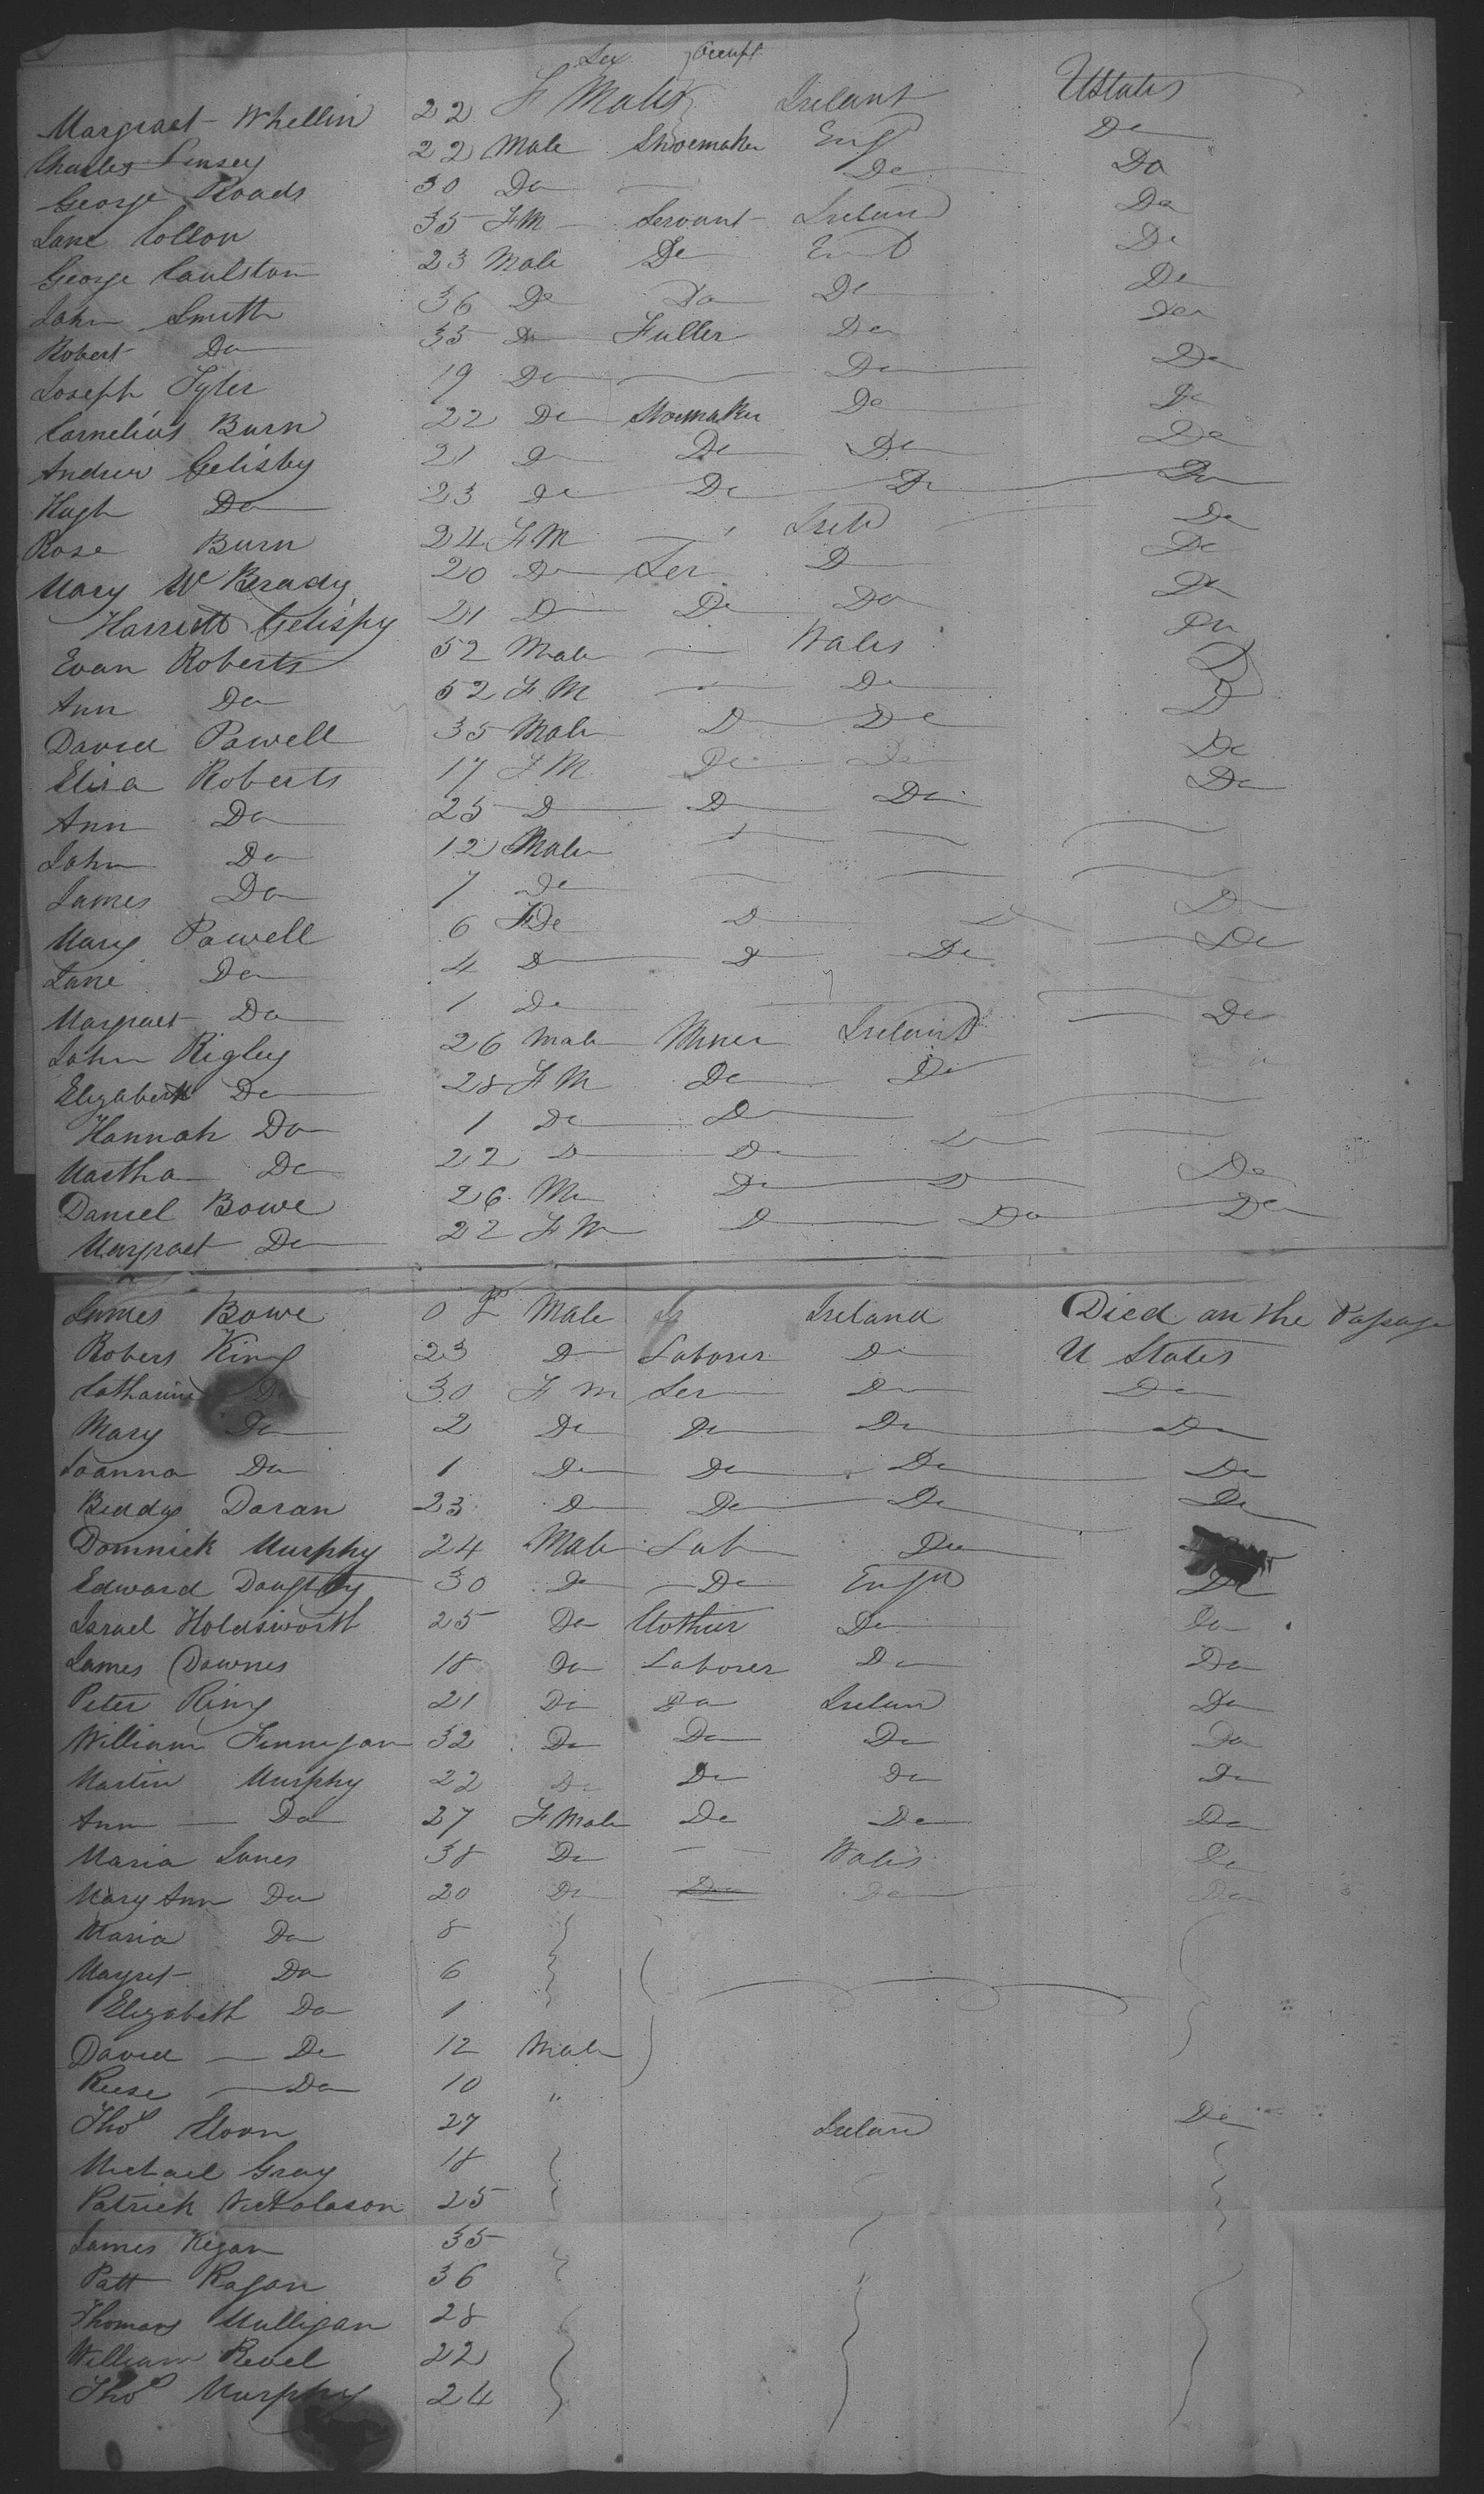 Sex Occupt
Margraet Whellin 22 F Male Irelant UStates
Charles Linsey 22 Male Shoemaker Eng Do
George Roads 30 Do — Do Do
Jane Collon 35 F M Servant Ireland Do
George Caulston 23 Male Do Do
John Smith 36 Do Do Do Do
Robert Do 35 Do Fuller Do Do
Joseph Tyler 19 Do — Do Do
Cornelius Burn 22 Do Shoemaker Do Do
Andrew Gelisby 21 Do Do Do Do
Hugh Do 23 Do Do Do Do
Rose Burn 24 F M — Irela Do
Mary W Brady 20 Do Ser D Do
Harriett Gelisby 21 D Do Do Do
Evan Roberts 52 Male — Wales Do
Ann Do 52 F M — Do D
David Powell 35 Male D Do D
Elisa Roberts 17 F M Do Do Do
Ann Do 25 D D Do Do
John Do 12 Male
James Do 7 Do
Mary Powell 6 F Do D D Do
Jane Do 4 D D Do Do
Margraet Do 1 Do
John Rigley 26 Male Miner Ireland Do
Elizabeth Do 28 F M Do Do Do
Hannah Do 1 Do D
Martha Do 22 D Do D
Daniel Bowe 26 M Do D Do
Margraet Do 22 F M D Do Do
James Bowe 0 Male Ireland Died on the Passage
Robert King 23 D Laborer Do U States
Catharine Do 30 F M Ser Do Do
Mary Do 2 Do Do Do Do
Joanna Do 1 Do Do Do Do
Biddy Doran 23 D Do Do Do
Domnick Murphy 24 Male Lab Do
Edward Doughty 30 Do Do Engd Do
Israel Holdsworth 25 Do Clothier Do Do
James Downes 18 Do Laborer Do Do
Peter Ring 21 Do Do Ireland Do
William Finnigan 32 Do Do Do Do
Martin Murphy 22 Do Do Do Do
Ann — Do 27 F Male Do Do Do
Maria Jones 38 Do — Wales Do
Mary Ann Do 20 Do Do Do Do
Maria Do 8
Magret Do 6
Elizabeth Do 1
David — Do 12 Male
Reese — Do 10 "
Thos Moon 27 Ireland Do
Michael Gray 18
Patrick Nicholason 25
James Kigan 35
Patt Ragan 36
Thomas Mulligan 28
William Revel 22
Thos Murphy 24